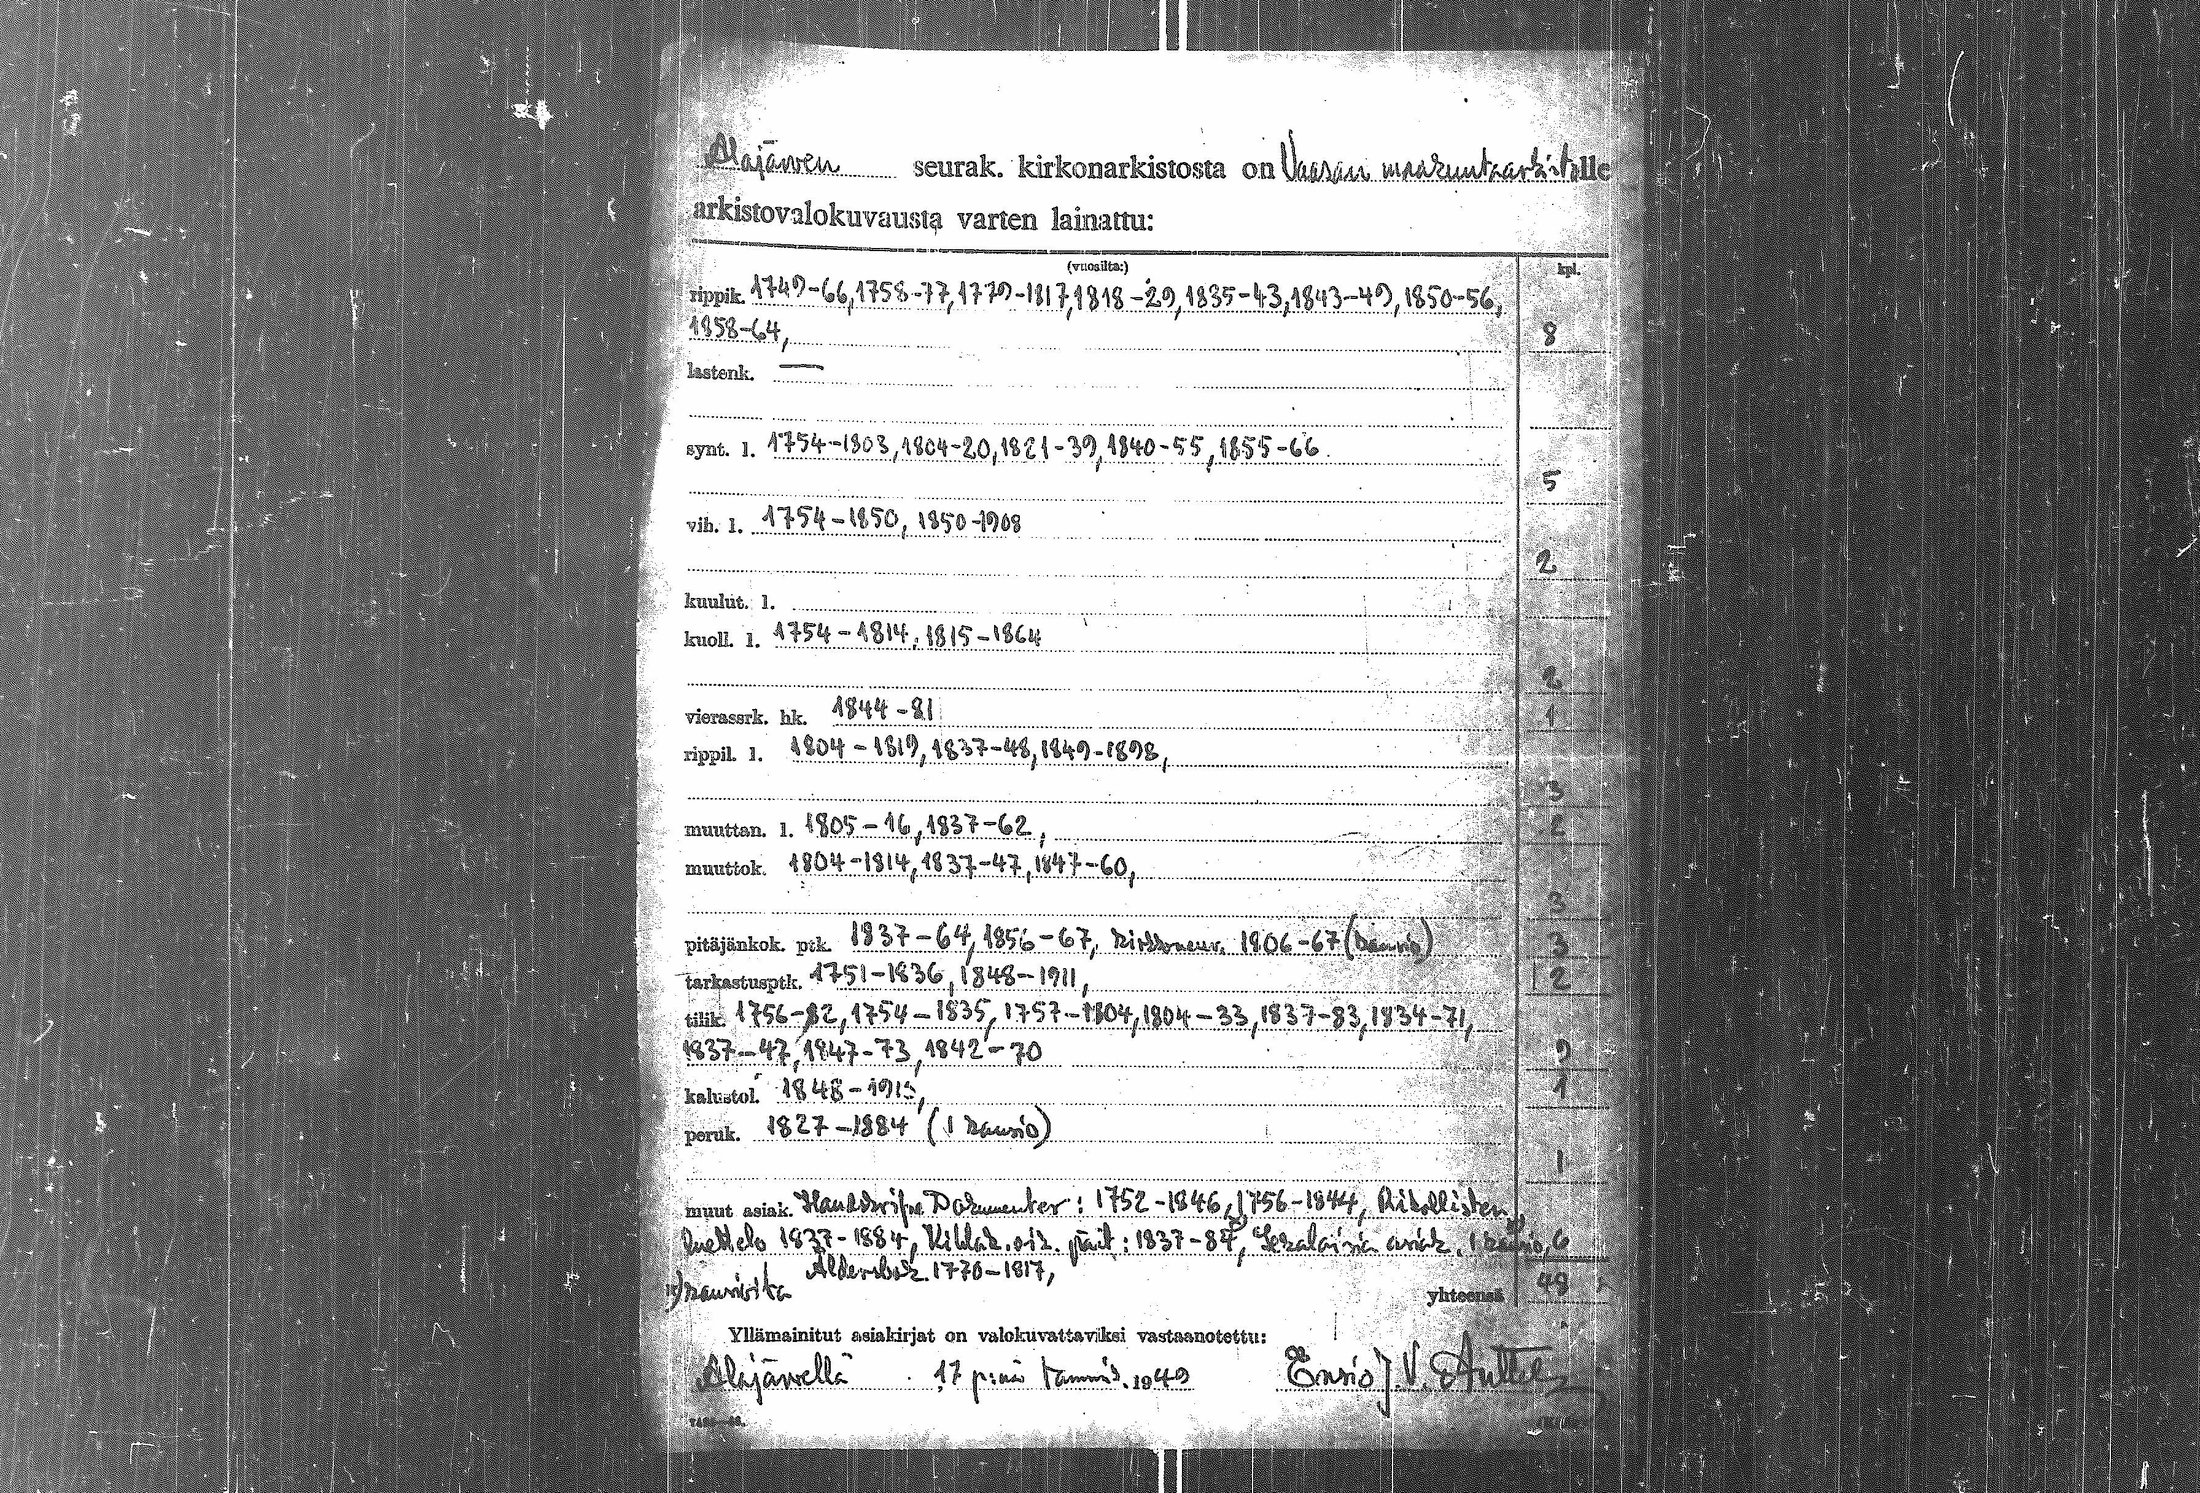 Alajärven seurak. kirkonarkistosta on Vaasan maakuntaarkistolle
arkistovalokuvausta varten lainattu:
(vuosilta:) kpl.
rippik. 1749-66, 1758-77, 1779-1817, 1818-29, 1835-43, 1843-49, 1850-56,
1858-64, 8
lastenk. —
synt. l. 1754-1803, 1804-20, 1821-39, 1840-55, 1855-66.
5
vih. l. 1754-1850, 1850-1908
2
kuulut. l.
kuoll. l. 1754-1814, 1815-1864
2
vierassrk. hk. 1844-81 1
rippil. l. 1804-1819, 1837-48, 1849-1898,
3
muuttan. l. 1805-16, 1837-62, 2
muuttok. 1804-1814, 1837-47, 1847-60,
3
pitäjänkok. ptk. 1837-64, 1856-67, kirkkoneuv. 1806-67 (kansio) 3
tarkastusptk. 1751-1836, 1848-1911, 2
tilik. 1756-82, 1754-1835, 1757-1804, 1804-33, 1837-83, 1834-71,
1837-47, 1847-73, 1842-70 9
kalustol. 1848-1915, 1
peruk. 1827-1884 (1 kansio)
1
muut asiak. Handskrifne Dokumenter: 1752-1846, 1756-1844, Rikollisten
luettelo 1837-1884, Kihlak. oik. päät: 1837-87, Sekalaisia asiak. 1 kansio, 6
Åldersbok 1770-1817,
x) kansioita yhteensä 48
Yllämainitut asiakirjat on valokuvattaviksi vastaanotettu:
Alajärvellä 17 p:nä tammik. 1949 Ensio J. V.